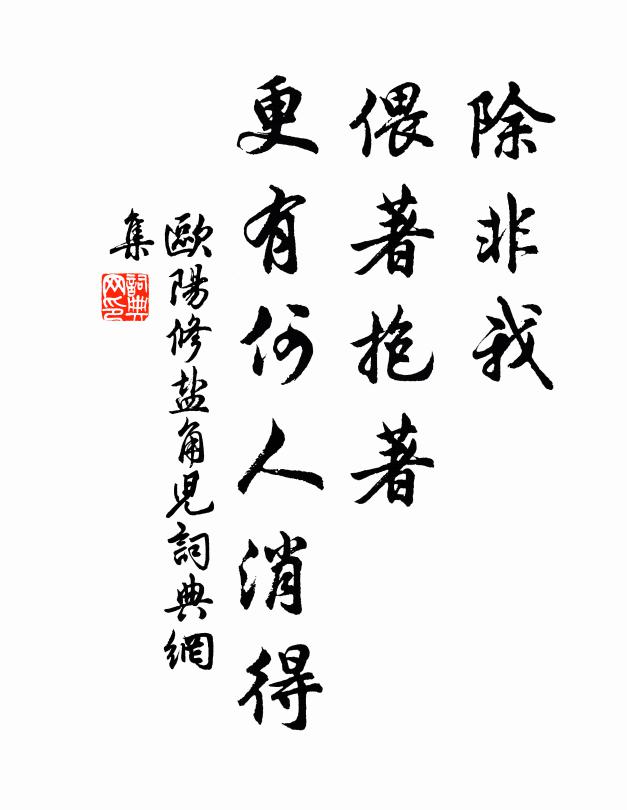 除非我
偎著抱著
更有何人消得
歐陽修盐角児詞典網
集
詞典
网印